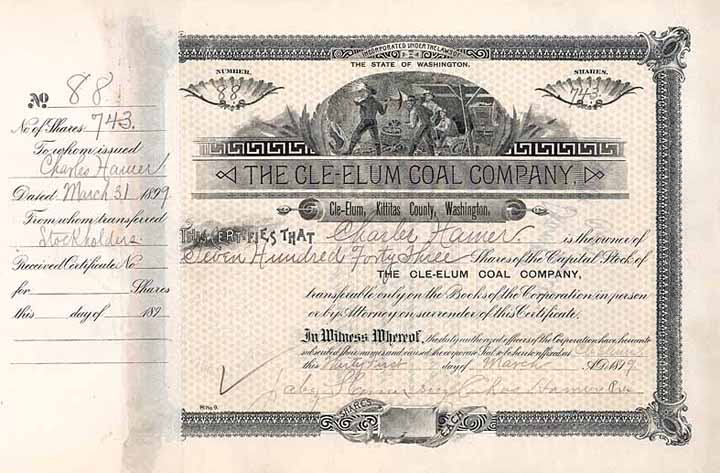 No 88
No of Shares 743.
To whom issued
Charles Hamer
Dated March 31 1899
From whom transferred
Stockholders
Received Certificate No
for Shares
this day of 189
INCORPORATED UNDER THE LAWS OF
THE STATE OF WASHINGTON.
NUMBER. SHARES.
88 743
THE CLE-ELUM COAL COMPANY,
Cle-Elum, Kittitas County, Washington.
THIS CERTIFIES THAT Charles Hamer is the owner of
Seven Hundred Forty Three Shares of the Capital Stock of
THE CLE-ELUM COAL COMPANY,
transferable only on the Books of the Corporation in person
or by Attorney on surrender of this Certificate.
In Witness Whereof, the duly authorized officers of the Corporation have hereunto
subscribed their names and caused the corporate Seal to be hereto affixed at
this Thirty First day of March A.D. 1899
Chas Hamer Pres
SHARES EACH